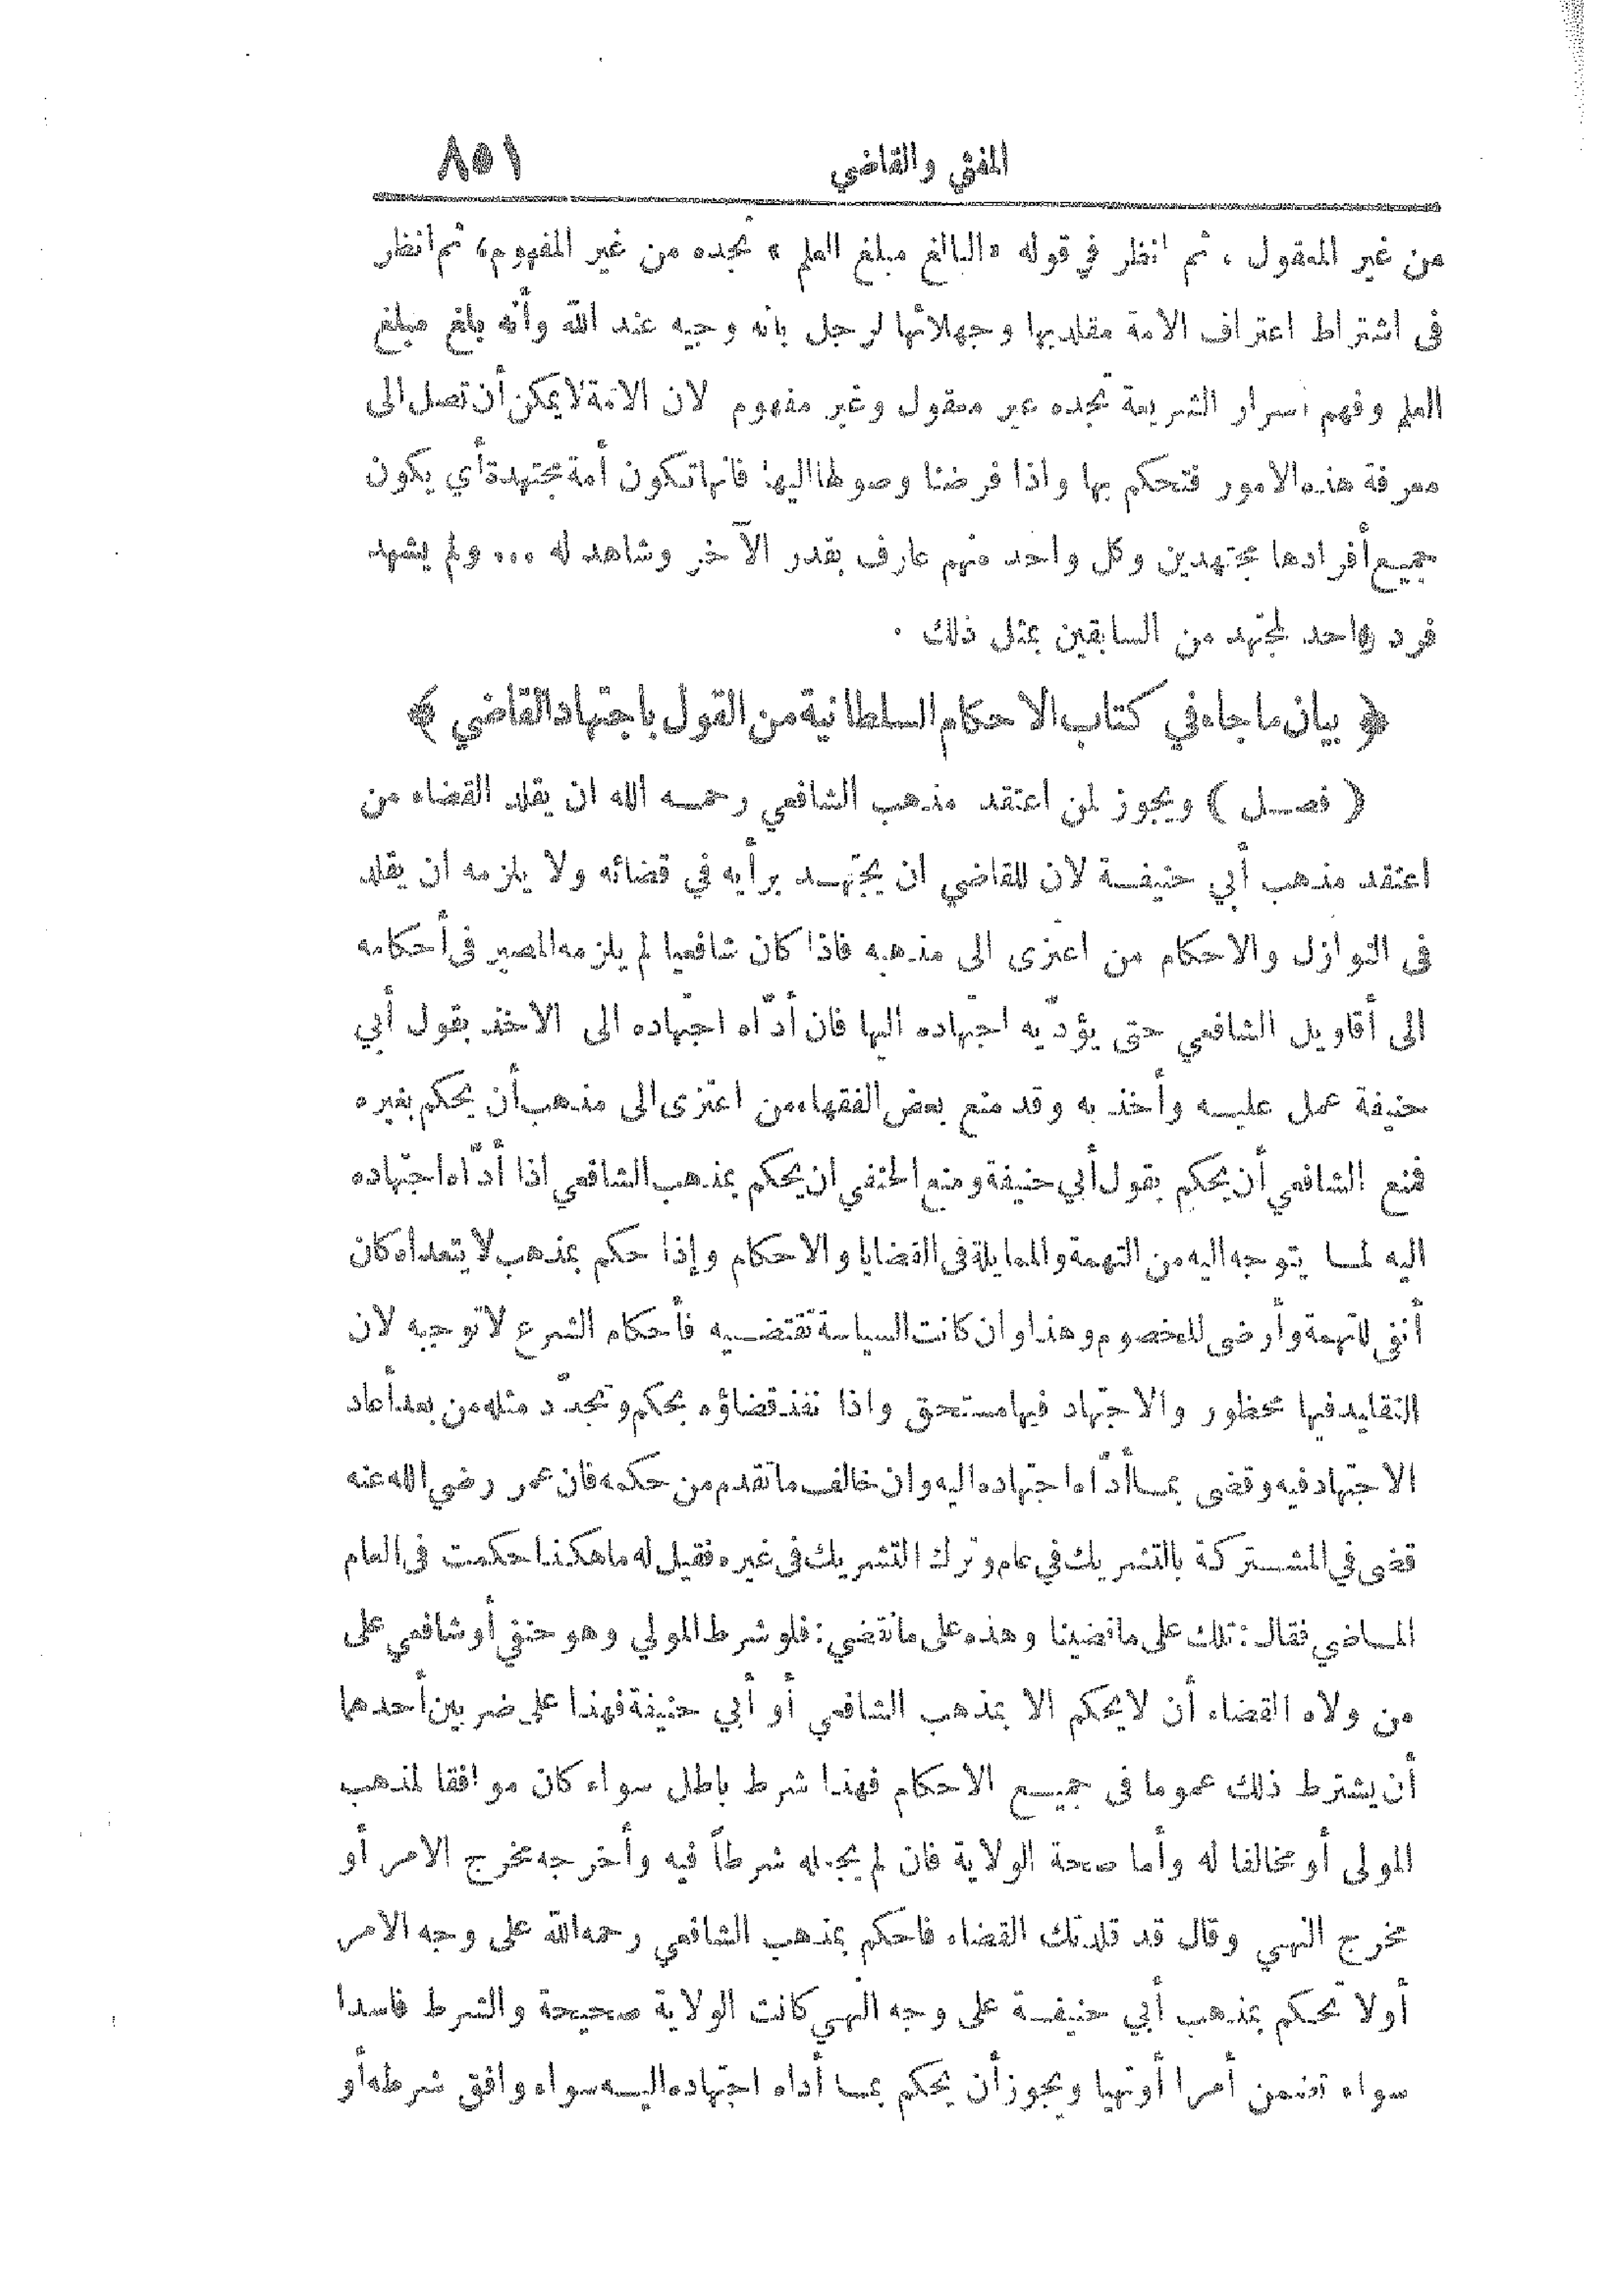 المفتي والقاضي ٨٥١
من غير المعقول ، ثم انظر في قوله «البالغ مبلغ العلم» تجده من غير المفهوم، ثم انظر
فى اشتراط اعتراف الامة مقلديها وجهلائها لرجل بانه وجيه عند الله وأنه بلغ مبلغ
العلم وفهم اسرار الشريعة تجده غير معقول وغير مفهوم لان الامة لا يمكن أن تصل الى
معرفة هذه الامور فتحكم بها واذا فرضنا وصولها اليها فانها تكون أمة مجتهدة أي يكون
جميع أفرادها مجتهدين وكل واحد منهم عارف بقدر الآخر وشاهد له ... ولم يشهد
فرد واحد لمجتهد من السابقين بمثل ذلك .
﴿ بيان ما جاء في كتاب الاحكام السلطانية من القول باجتهاد القاضي ﴾
( فصــل ) ويجوز لمن اعتقد مذهب الشافعي رحمه الله ان يقلد القضاء من
اعتقد مذهب أبي حنيفــة لان للقاضي ان يجتهــد برأيه في قضائه ولا يلزمه ان يقلد
فى النوازل والاحكام من اعتزى الى مذهبه فاذا كان شافعيا لم يلزمه المصير فى أحكامه
الى أقاويل الشافعي حتى يؤدّيه اجتهاده اليها فان أدّاه اجتهاده الى الاخذ بقول أبي
حنيفة عمل عليــه وأخذ به وقد منع بعض الفقهاء من اعتزى الى مذهب أن يحكم بغيره
فمنع الشافعي أن يحكم بقول أبي حنيفة ومنع الحنفي ان يحكم بمذهب الشافعي اذا أدّاه اجتهاده
اليه لمــا يتوجه اليه من التهمة والممايلة فى القضايا والاحكام وإذا حكم بمذهب لا يتعداه كان
أنفى للتهمة وأرضى للخصوم وهذا وان كانت السياسة تقتضــيه فأحكام الشرع لا توجبه لان
التقليد فيها محظور والاجتهاد فيها مستحق واذا نفذ قضاؤه بحكم وتجدّد مثله من بعد أعاد
الاجتهاد فيه وقضى بمــا أدّاه اجتهاده اليه وان خالف ما تقدم من حكمه فان عمر رضي الله عنه
قضى في المشــتركة بالتشريك في عام وترك التشريك فى غيره فقيل له ما هكذا حكمت فى العام
المــاضي فقال: تلك على ما قضينا وهذه على ما نقضي: فلو شرط المولي وهو حنفي أو شافعي على
من ولاه القضاء أن لا يحكم الا بمذهب الشافعي أو أبي حنيفة فهذا على ضربين أحدهما
أن يشترط ذلك عموما فى جميــع الاحكام فهذا شرط باطل سواء كان موافقا لمذهب
المولى أو مخالفا له وأما صحة الولاية فان لم يجعله شرطاً فيه وأخرجه مخرج الامر أو
مخرج النهي وقال قد قلدتك القضاء فاحكم بمذهب الشافعي رحمه الله على وجه الامر
أولا تحكم بمذهب أبي حنيفــة على وجه النهي كانت الولاية صحيحة والشرط فاسدا
سواء تضمن أمرا أو نهيا ويجوز أن يحكم بمــا أداه اجتهاده اليــه سواء وافق شرطه أو